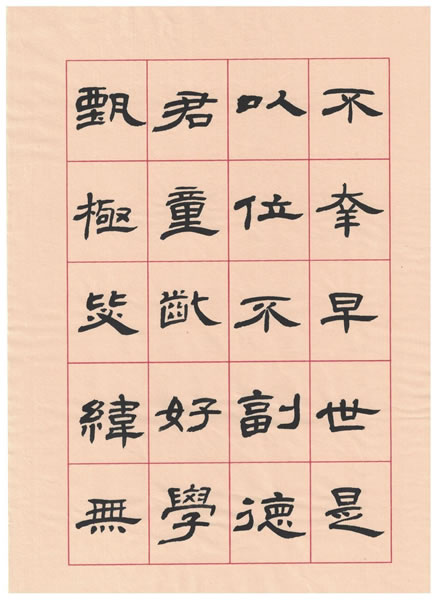 不幸早世是
以位不副德
君童齔好學
甄極毖緯無